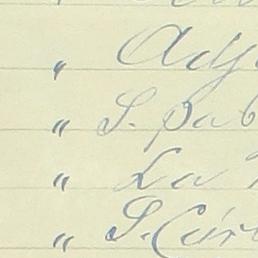 „ Adj
„ S. pab
„ La
„ S. Cár